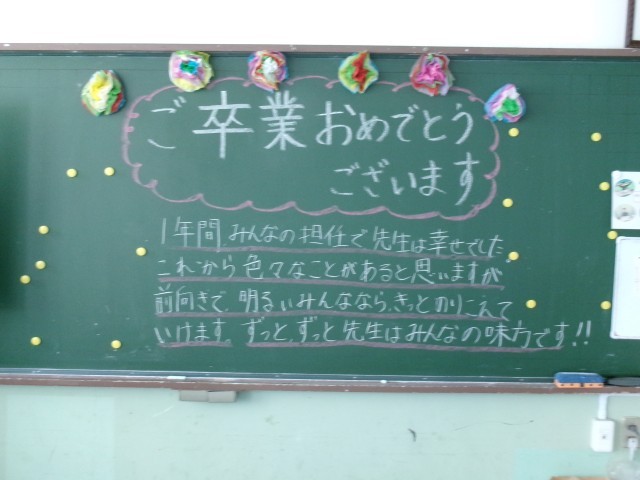 ご卒業おめでとう
ございます
1年間、みんなの担任で先生は幸せでした
これから色々なことがあると思いますが
前向きで、明るいみんななら、きっとのりこえて
いけます。ずっと、ずっと先生はみんなの味方です!!